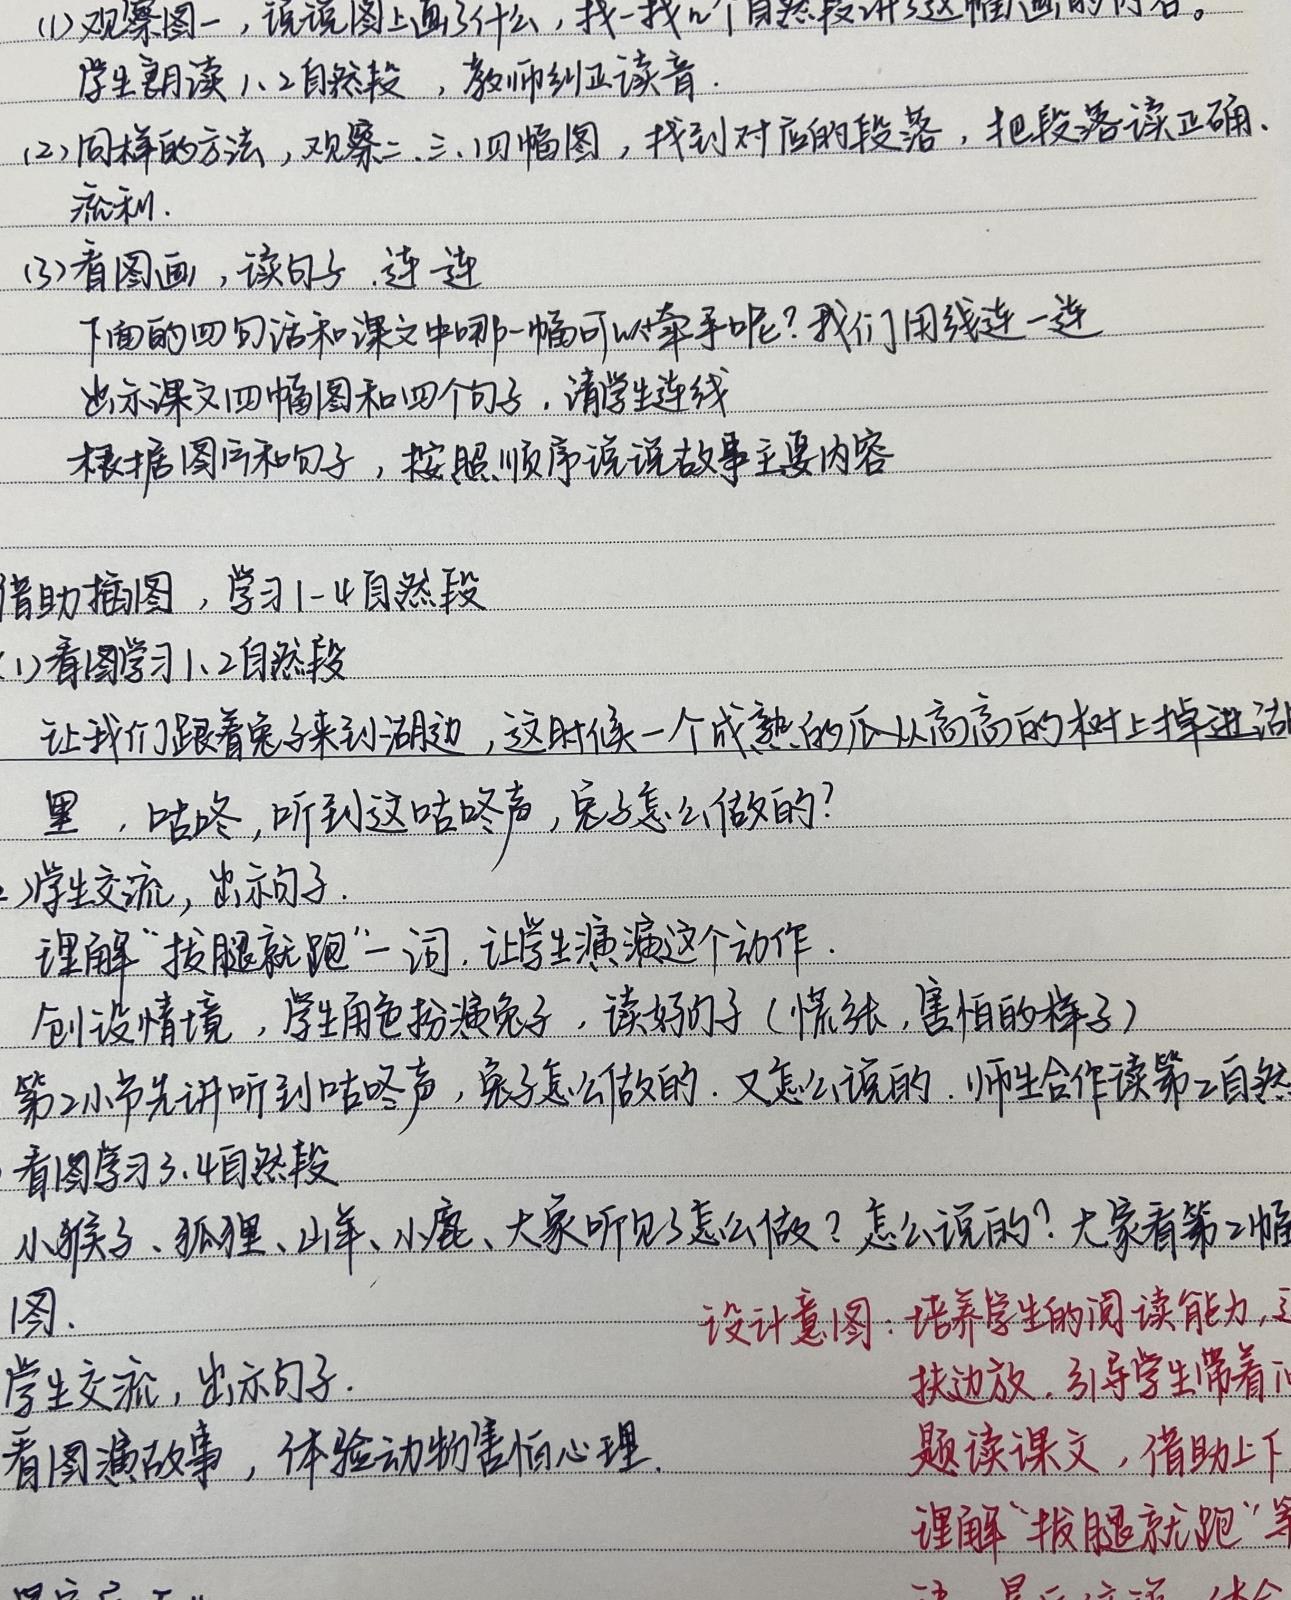 (1)观察图一，说说图上画了什么，找一找几个自然段讲了这幅画的内容。
学生朗读1、2自然段，教师纠正读音.
(2)同样的方法，观察二.三.四幅图，找到对应的段落，把段落读正确.
流利.
(3)看图画，读句子.连一连
下面的四句话和课文中哪一幅可以牵手呢？我们用线连一连
出示课文四幅图和四个句子，请学生连线
根据图片和句子，按照顺序说说故事主要内容
借助插图，学习1-4自然段
(1)看图学习1、2自然段
让我们跟着兔子来到湖边，这时候一个成熟的瓜从高高的树上掉进湖
里，咕咚，听到这咕咚声，兔子怎么做的？
)学生交流，出示句子.
理解“拔腿就跑”一词.让学生演演这个动作.
创设情境，学生角色扮演兔子，读好句子(慌张，害怕的样子)
第2小节先讲听到咕咚声，兔子怎么做的.又怎么说的.师生合作读第2自然
看图学习3.4自然段
小猴子、狐狸、山羊、小鹿、大象听见了怎么做？怎么说的？大家看第2幅
图.
设计意图：培养学生的阅读能力，
学生交流，出示句子.
扶边放.引导学生带着
看图演故事，体验动物害怕心理.
题读课文，借助上下
理解“拔腿就跑”等